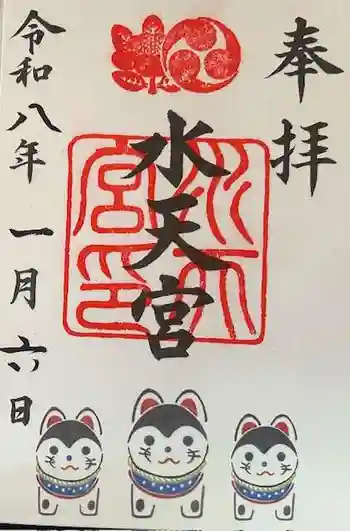 奉拝
水天宮
水天宮印
令和八年一月六日